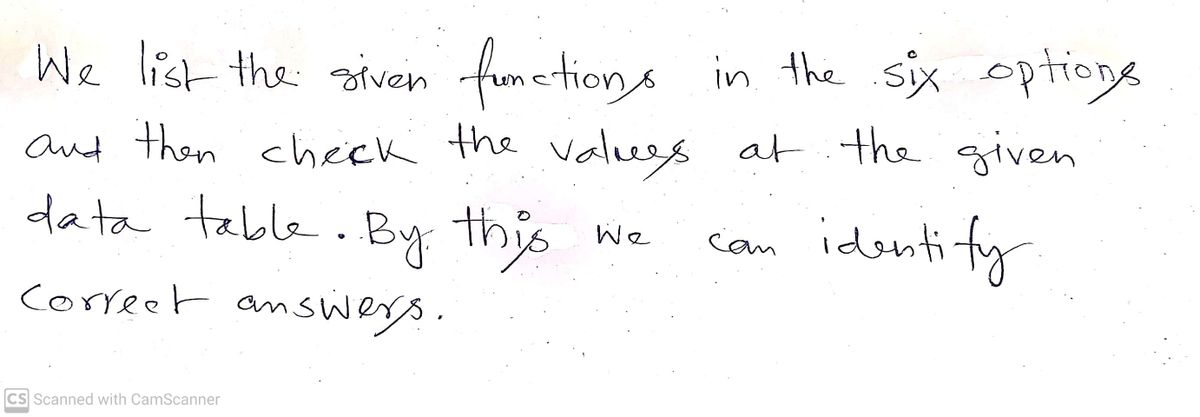 We list the given functions in the six options
and then check the values at the given
data table. By this we can identify
correct answers.
CS Scanned with CamScanner